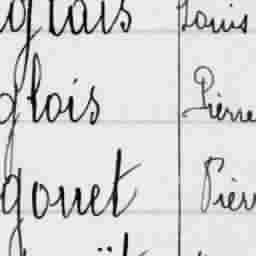 glais Louis
glois Pierre
gouet Pierr